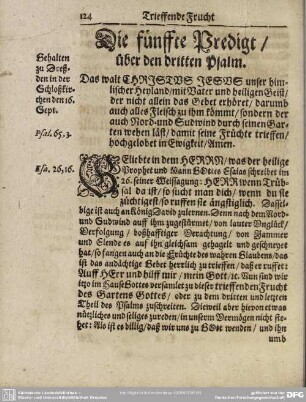 124
Trieffende Frucht
Die fünffte Predigt /
über den dritten Psalm.
Gehalten
zu Dreß-
den in der
Schloßkir-
chen den 16.
Sept.
Das walt CHRISTVS JESVS unser him-
lischer Heyland / mit Vater und heiligen Geist /
der nicht allein das Gebet erhöret / darumb
auch alles Fleisch zu ihm kömmt / sondern der
Psal. 65, 3.
auch Nord- und Sudwind durch seinen Gar-
ten wehen läst / damit seine Früchte trieffen /
hochgelobet in Ewigkeit / Amen.
GEliebte in dem HERRN / was der heilige
Prophet und Mann GOttes Esaias schreibet im
Esa. 26, 16.
26. seiner Weissagung: HERR wenn Trüb-
sal da ist / so sucht man dich / wenn du sie
züchtigest / so ruffen sie ängstiglich. Dassel-
bige ist auch an König David zu lernen. Denn nach dem Nord-
und Sudwind auff ihn zugestürmet / von lauter Unglück /
Verfolgung / boßhafftiger Verachtung / von Jammer
und Elende es auff ihn gleichsam gehagelt und geschneyet
hat / so fangen auch an die Früchte des wahren Glaubens / das
ist das andächtige Gebet herrlich zu trieffen / daß er ruffet:
Auff HErr und hilff mir / mein Gott / etc. Nun sind wir
itzo im Hause Gottes versamlet zu dieser trieffenden Frucht
des Gartens Gottes / oder zu dem dritten und letzten
Theil des Psalms zuschreiten. Dieweil aber hievon etwas
nützliches und seliges zureden / in unserm Vermögen nicht ste-
het: Als ist es billig / daß wir uns zu GOtt wenden / und ihn
umb